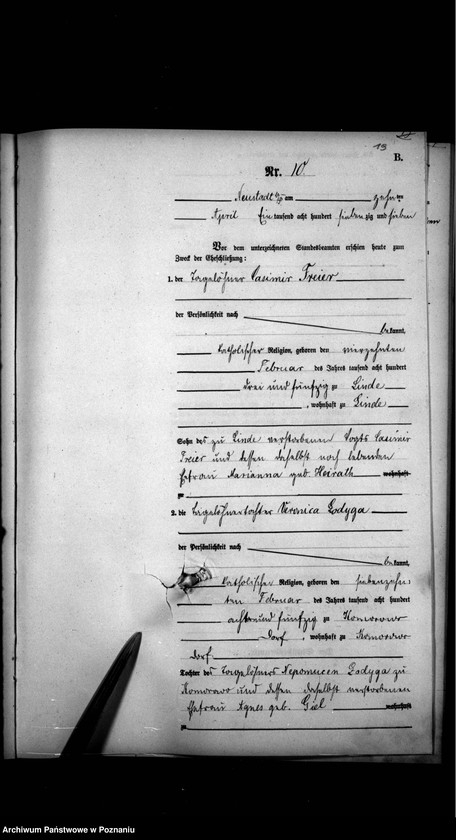 13
B.
Nr. 10
Neustadt a/W am zehnten
April Ein tausend acht hundert siebenzig und sieben
Vor dem unterzeichneten Standesbeamten erschien heute zum
Zweck der Eheschließung:
1. der Tagelöhner Casimir Treier
der Persönlichkeit nach
bekannt,
katholischer Religion, geboren den vierzehnten
Februar des Jahres tausend acht hundert
drei und fünfzig zu Linde
, wohnhaft zu Linde
Sohn des zu Linde verstorbenen Vogts Casimir
Treier und dessen daselbst noch lebenden
Ehefrau Marianna geb. Heirath wohnhaft
zu
2. die Tagelöhnertochter Veronica Godyga
der Persönlichkeit nach
bekannt,
katholischer Religion, geboren den siebenzehn-
ten Februar des Jahres tausend acht hundert
acht und fünfzig zu Komorowo
dorf , wohnhaft zu Komorowo
dorf
Tochter des Tagelöhners Nepomucen Godyga zu
Komorowo und dessen daselbst verstorbenen
Ehefrau Agnes geb. Giel wohnhaft
zu
Archiwum Państwowe w Poznaniu